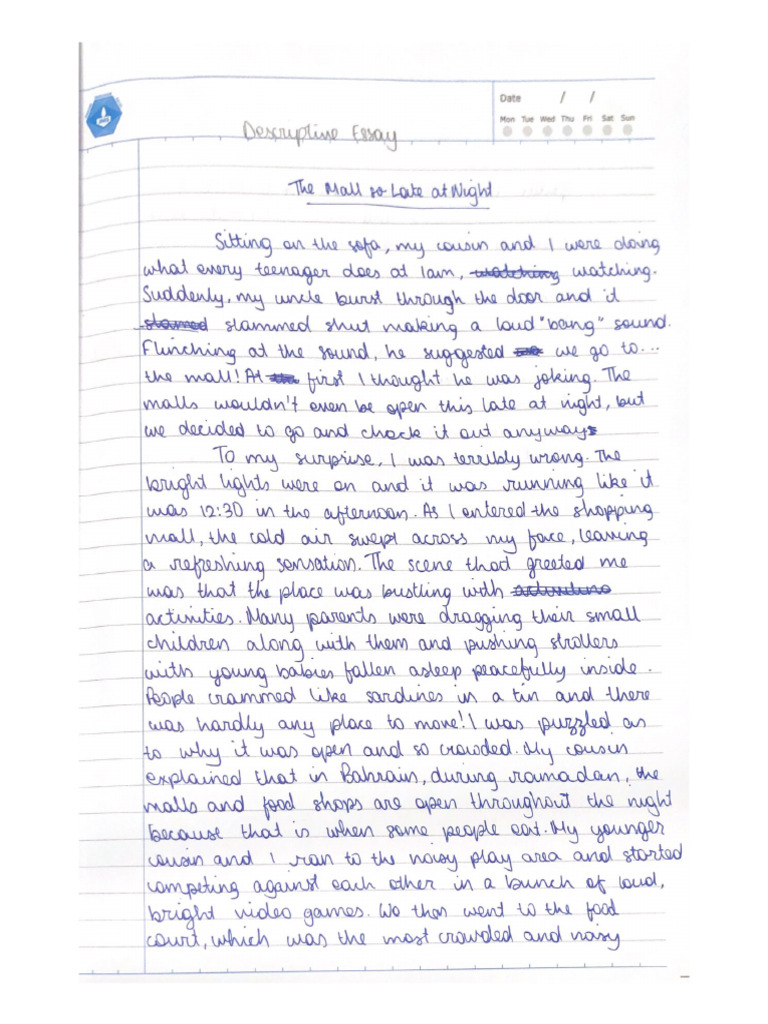 Date / /
Mon Tue Wed Thu Fri Sat Sun
Descriptive Essay
The Mall so Late at Night
Sitting on the sofa, my cousin and I were doing
what every teenager does at 1am, watching watching.
Suddenly, my uncle burst through the door and it
slamed slammed shut making a loud "bang" sound.
Flinching at the sound, he suggested we go to...
the mall! At first I thought he was joking. The
malls wouldn't even be open this late at night, but
we decided to go and check it out anyways
To my surprise, I was terribly wrong. The
bright lights were on and it was running like it
was 12:30 in the afternoon. As I entered the shopping
mall, the cold air swept across my face, leaving
a refreshing sensation. The scene that greeted me
was that the place was bustling with
activities. Many parents were dragging their small
children along with them and pushing strollers
with young babies fallen asleep peacefully inside.
People crammed like sardines in a tin and there
was hardly any place to move! I was puzzled as
to why it was open and so crowded. My cousin
explained that in Bahrain, during ramadan, the
malls and food shops are open throughout the night
because that is when some people eat. My younger
cousin and I ran to the noisy play area and started
competing against each other in a bunch of loud,
bright video games. We then went to the food
court, which was the most crowded and noisy